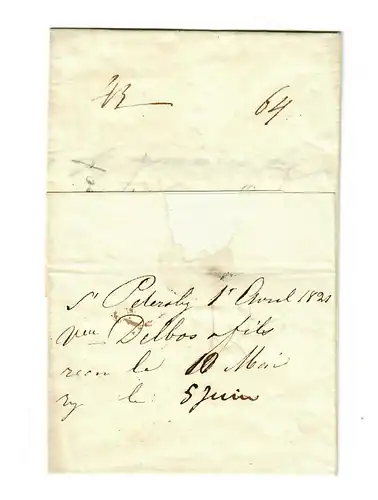 64
St Petersbg 1r Avril 1821
Veu Delbos & fils
recu le 10 Mai
rep le 5 Juin